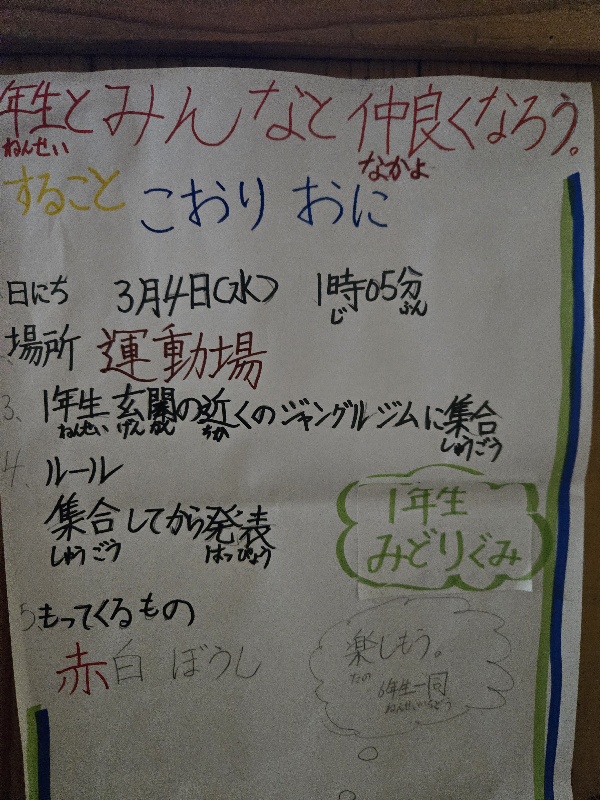 年生とみんなと仲良くなろう。
ねんせい なかよ
すること こおりおに
日にち 3月4日(水) 1時05分
じ ふん
場所 運動場
3、1年生玄関の近くのジャングルジムに集合
ねんせい げんかん ちか しゅうごう
4、ルール
集合してから発表
しゅうごう はっぴょう
1年生
みどりぐみ
5、もってくるもの
赤白ぼうし
楽しもう。
たの
6年生一同
ねんせいいちどう